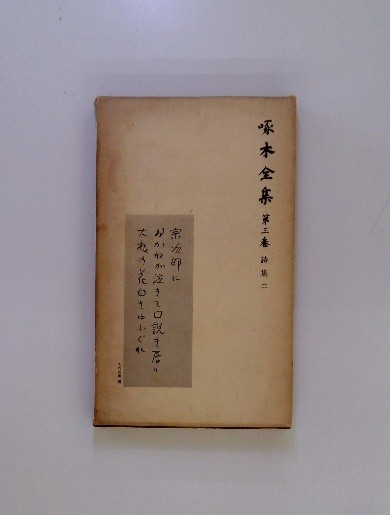 啄木全集 第三巻 詩集二
宗次郎に
おかねが泣きて口説き居り
大根の花白きゆふぐれ